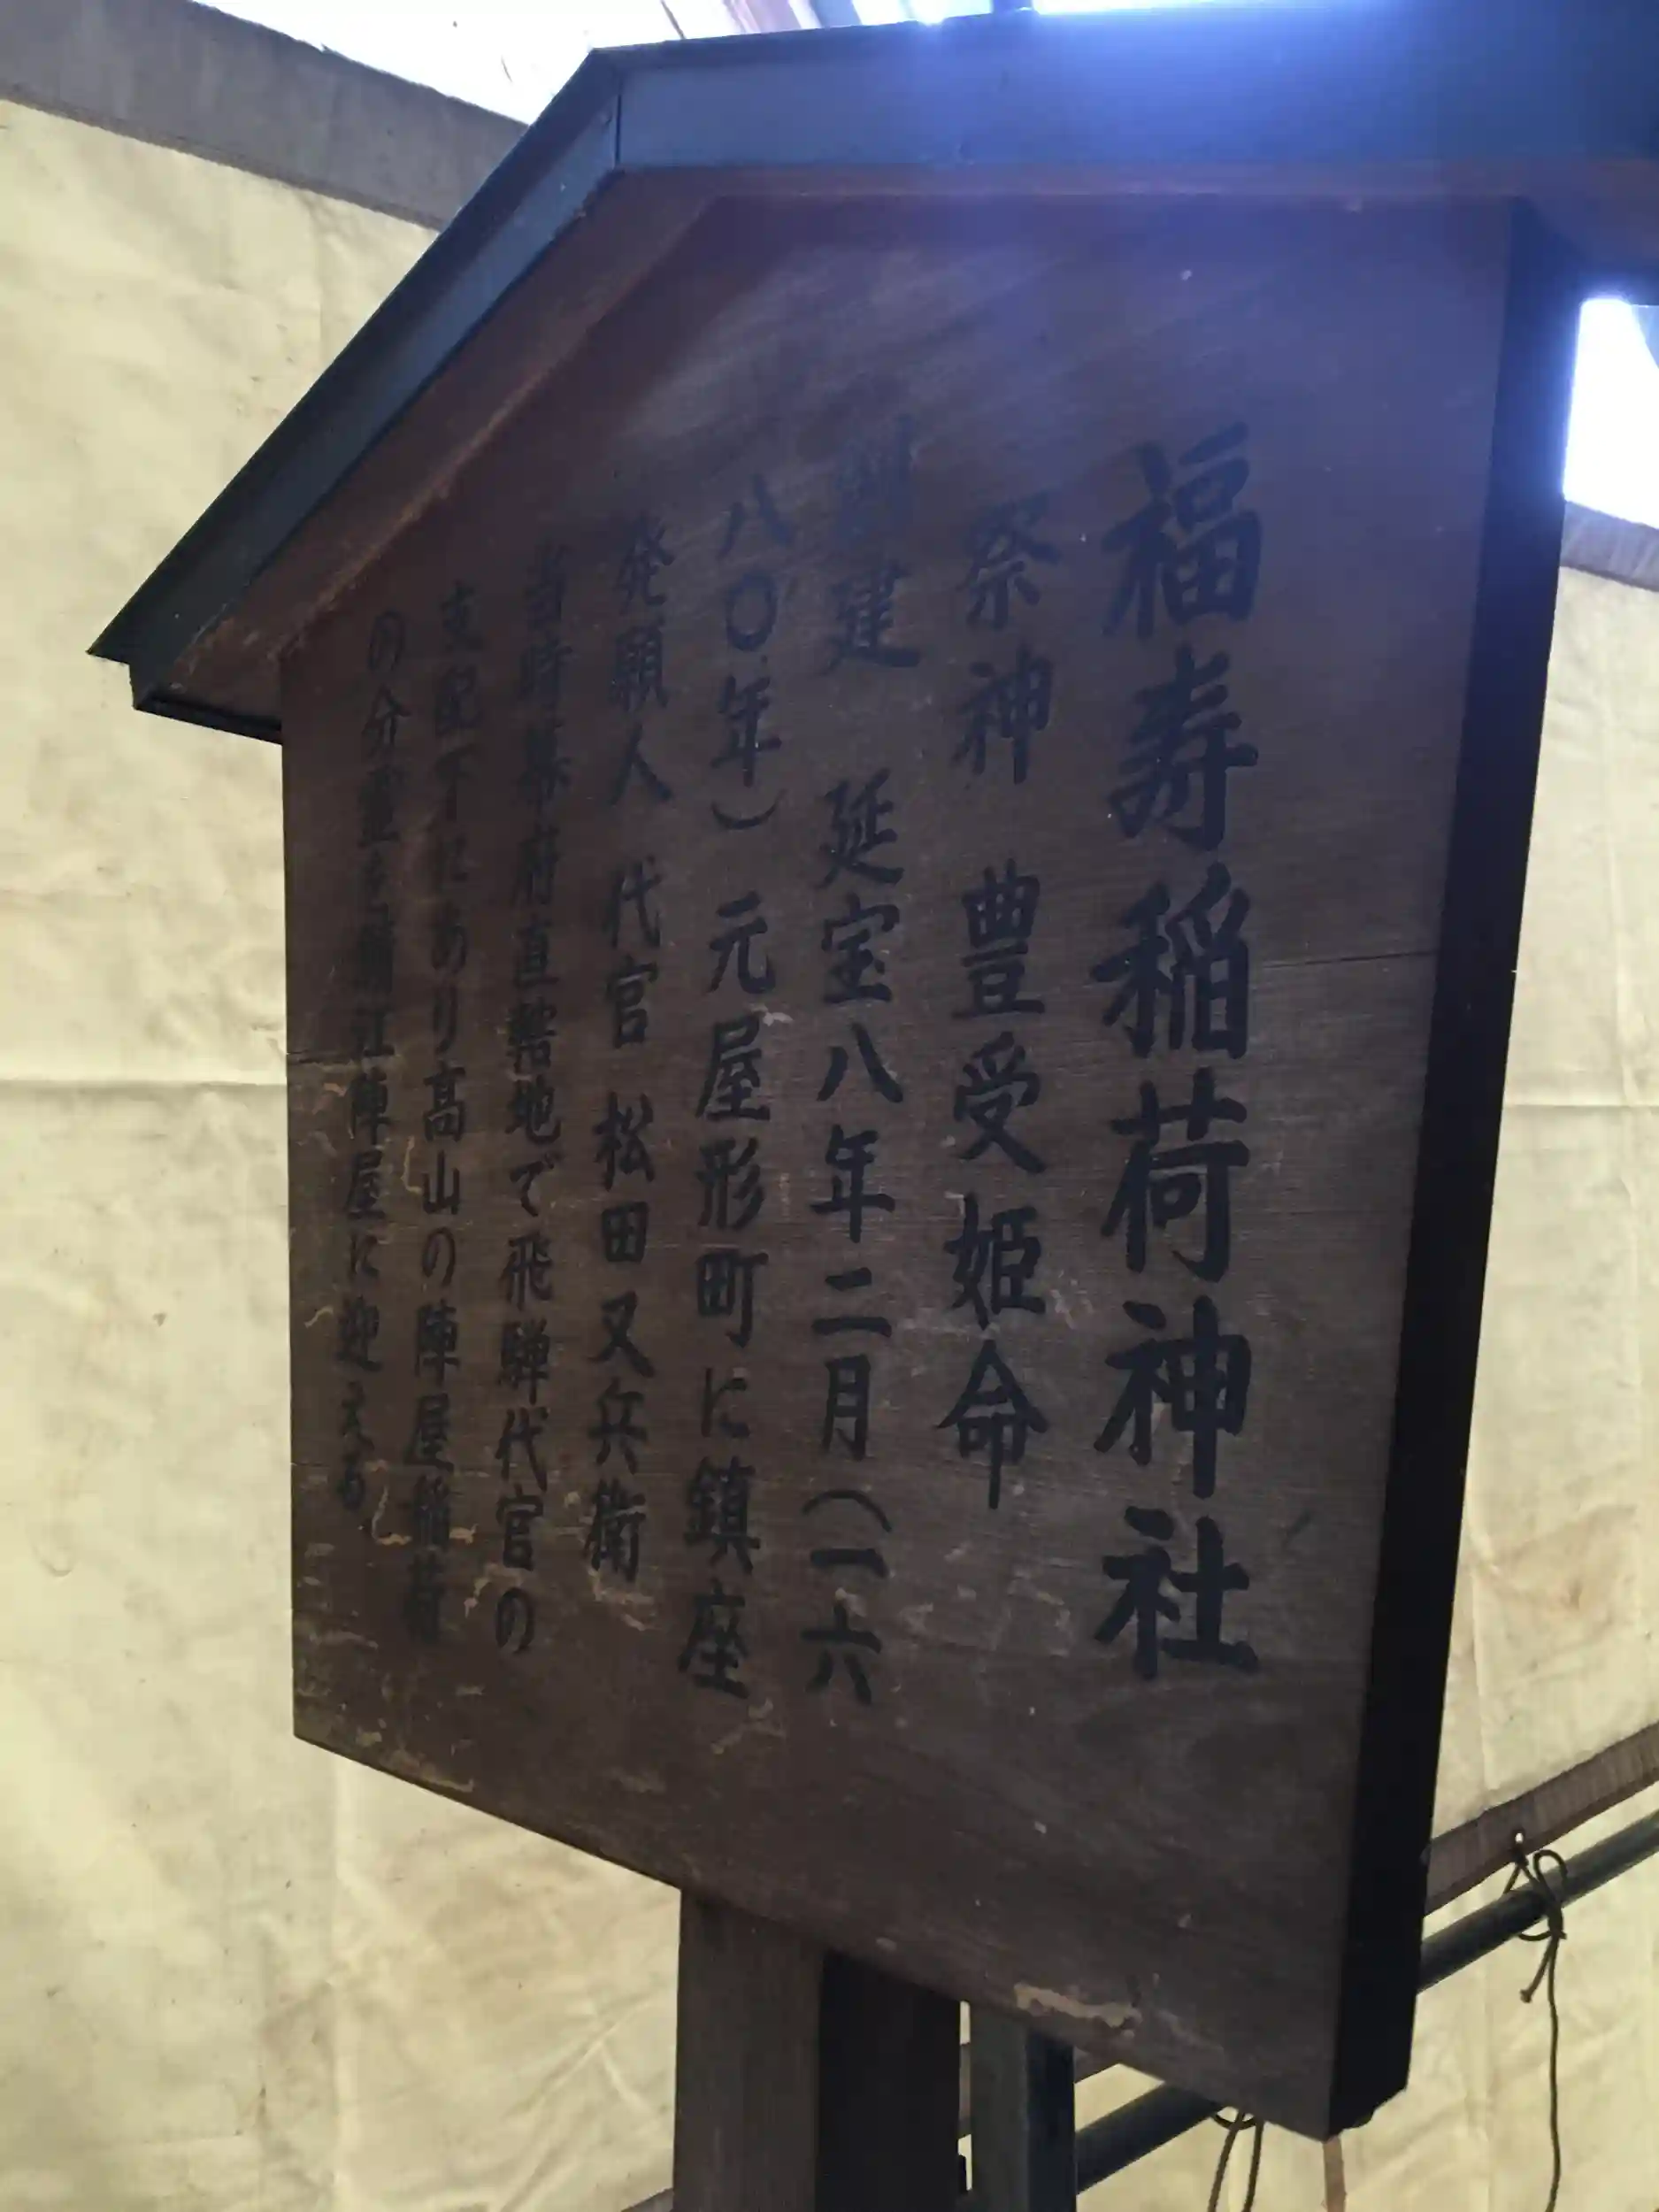 福寿稲荷神社
祭神 豊受姫命
創建 延宝八年二月(一六
八〇年)元屋形町に鎮座
発願人 代官 松田又兵衛
当時幕府直轄地で飛騨代官の
支配下にあり高山の陣屋稲荷
の分霊を 陣屋に迎える